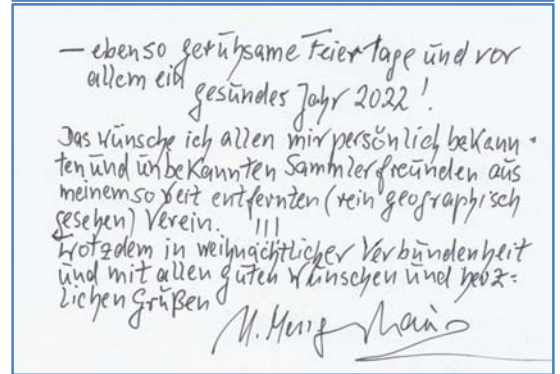 — ebenso geruhsame Feiertage und vor
allem ein
gesundes Jahr 2022!
Das wünsche ich allen mir persönlich bekann-
ten und unbekannten Sammlerfreunden aus
meinem so weit entfernten (rein geographisch
gesehen) Verein. !!!
Trotzdem in weihnachtlicher Verbundenheit
und mit allen guten Wünschen und herz=
lichen Grüßen